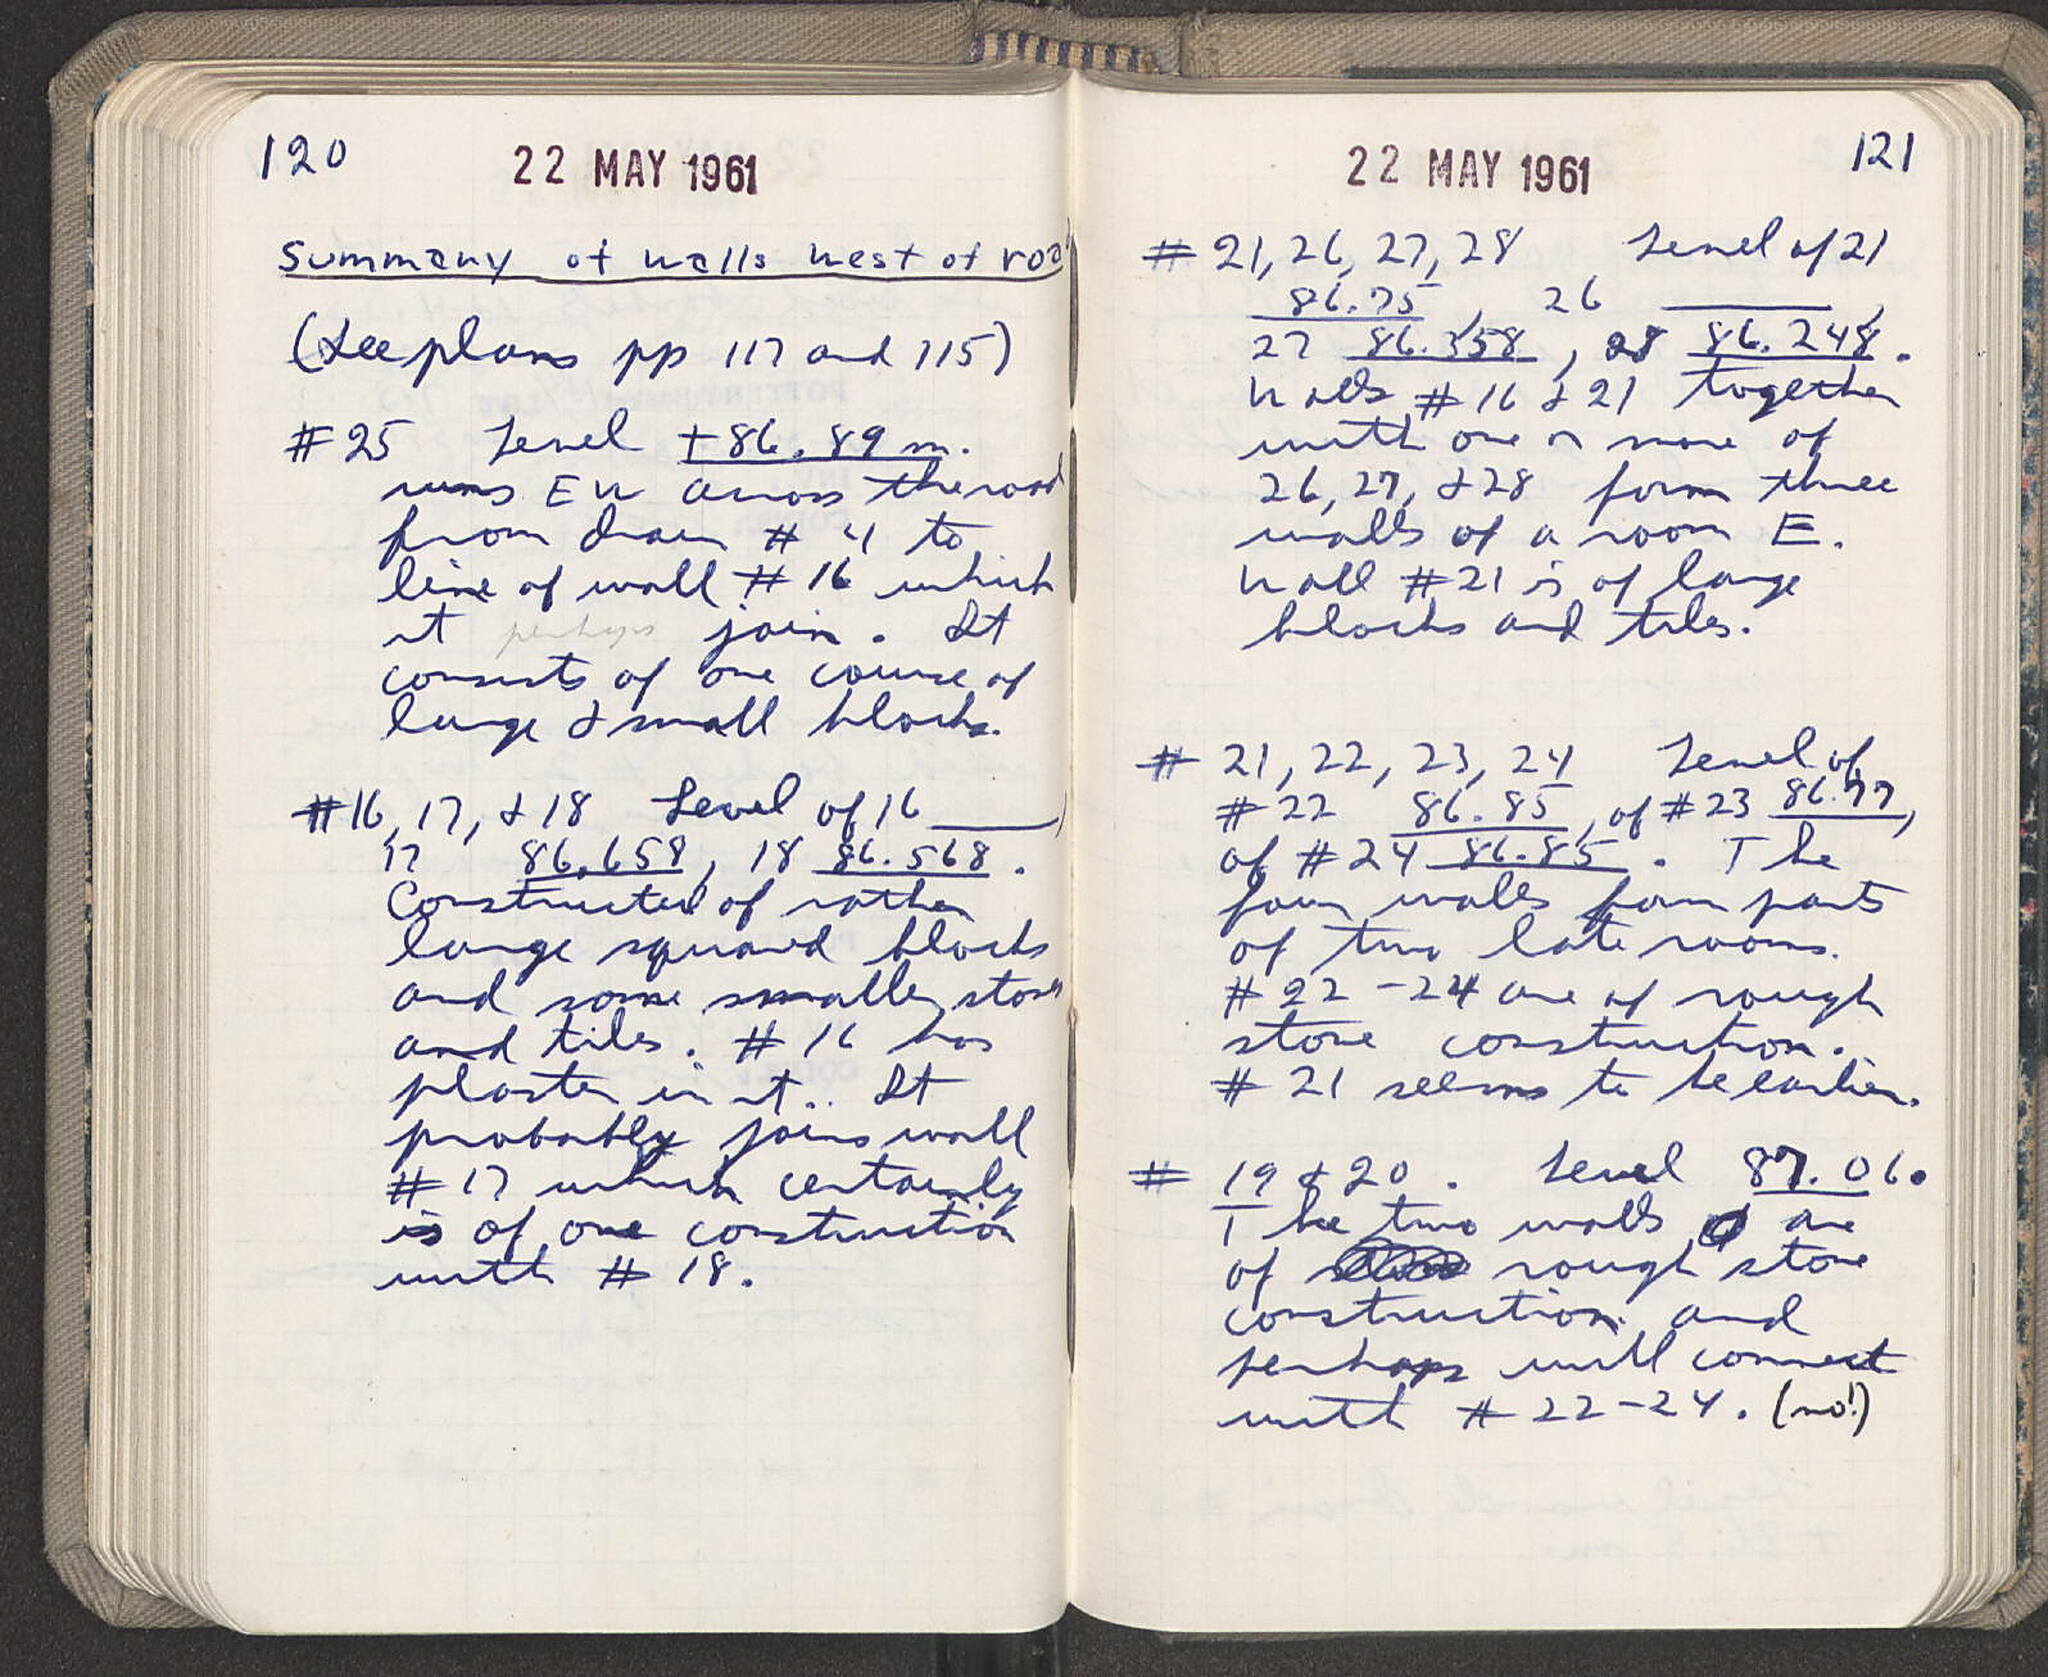 120
22 MAY 1961
Summary of walls West of road
(See plans pp 117 and 115)
#25 Level +86.89 m.
runs E W across the road
from drain # 4 to
line of wall # 16 which
it perhaps join. It
consists of one course of
large & small blocks.
#16, 17, & 18 Level of 16 ____,
17 86.658, 18 86.568.
Constructed of rather
large squared blocks
and some smaller stones
and tiles. # 16 has
plaster in it. It
probably joins wall
# 17 which certainly
is of one construction
with # 18.
22 MAY 1961
121
# 21, 26, 27, 28, Level of 21
86.75, 26 ____,
27 86.358, 28 86.248.
Walls #16 & 21 together
with one or more of
26, 27, & 28 form three
walls of a room E.
Wall #21 is of large
blocks and tiles.
# 21, 22, 23, 24 Level of
# 22 86.85, of #23 86.77,
of #24 86.85. The
four walls form parts
of two late rooms.
# 22 - 24 are of rough
stone construction.
# 21 seems to be earlier.
# 19 & 20. Level 87.06.
The two walls are
of rough stone
construction and
perhaps will connect
with # 22-24. (no!)